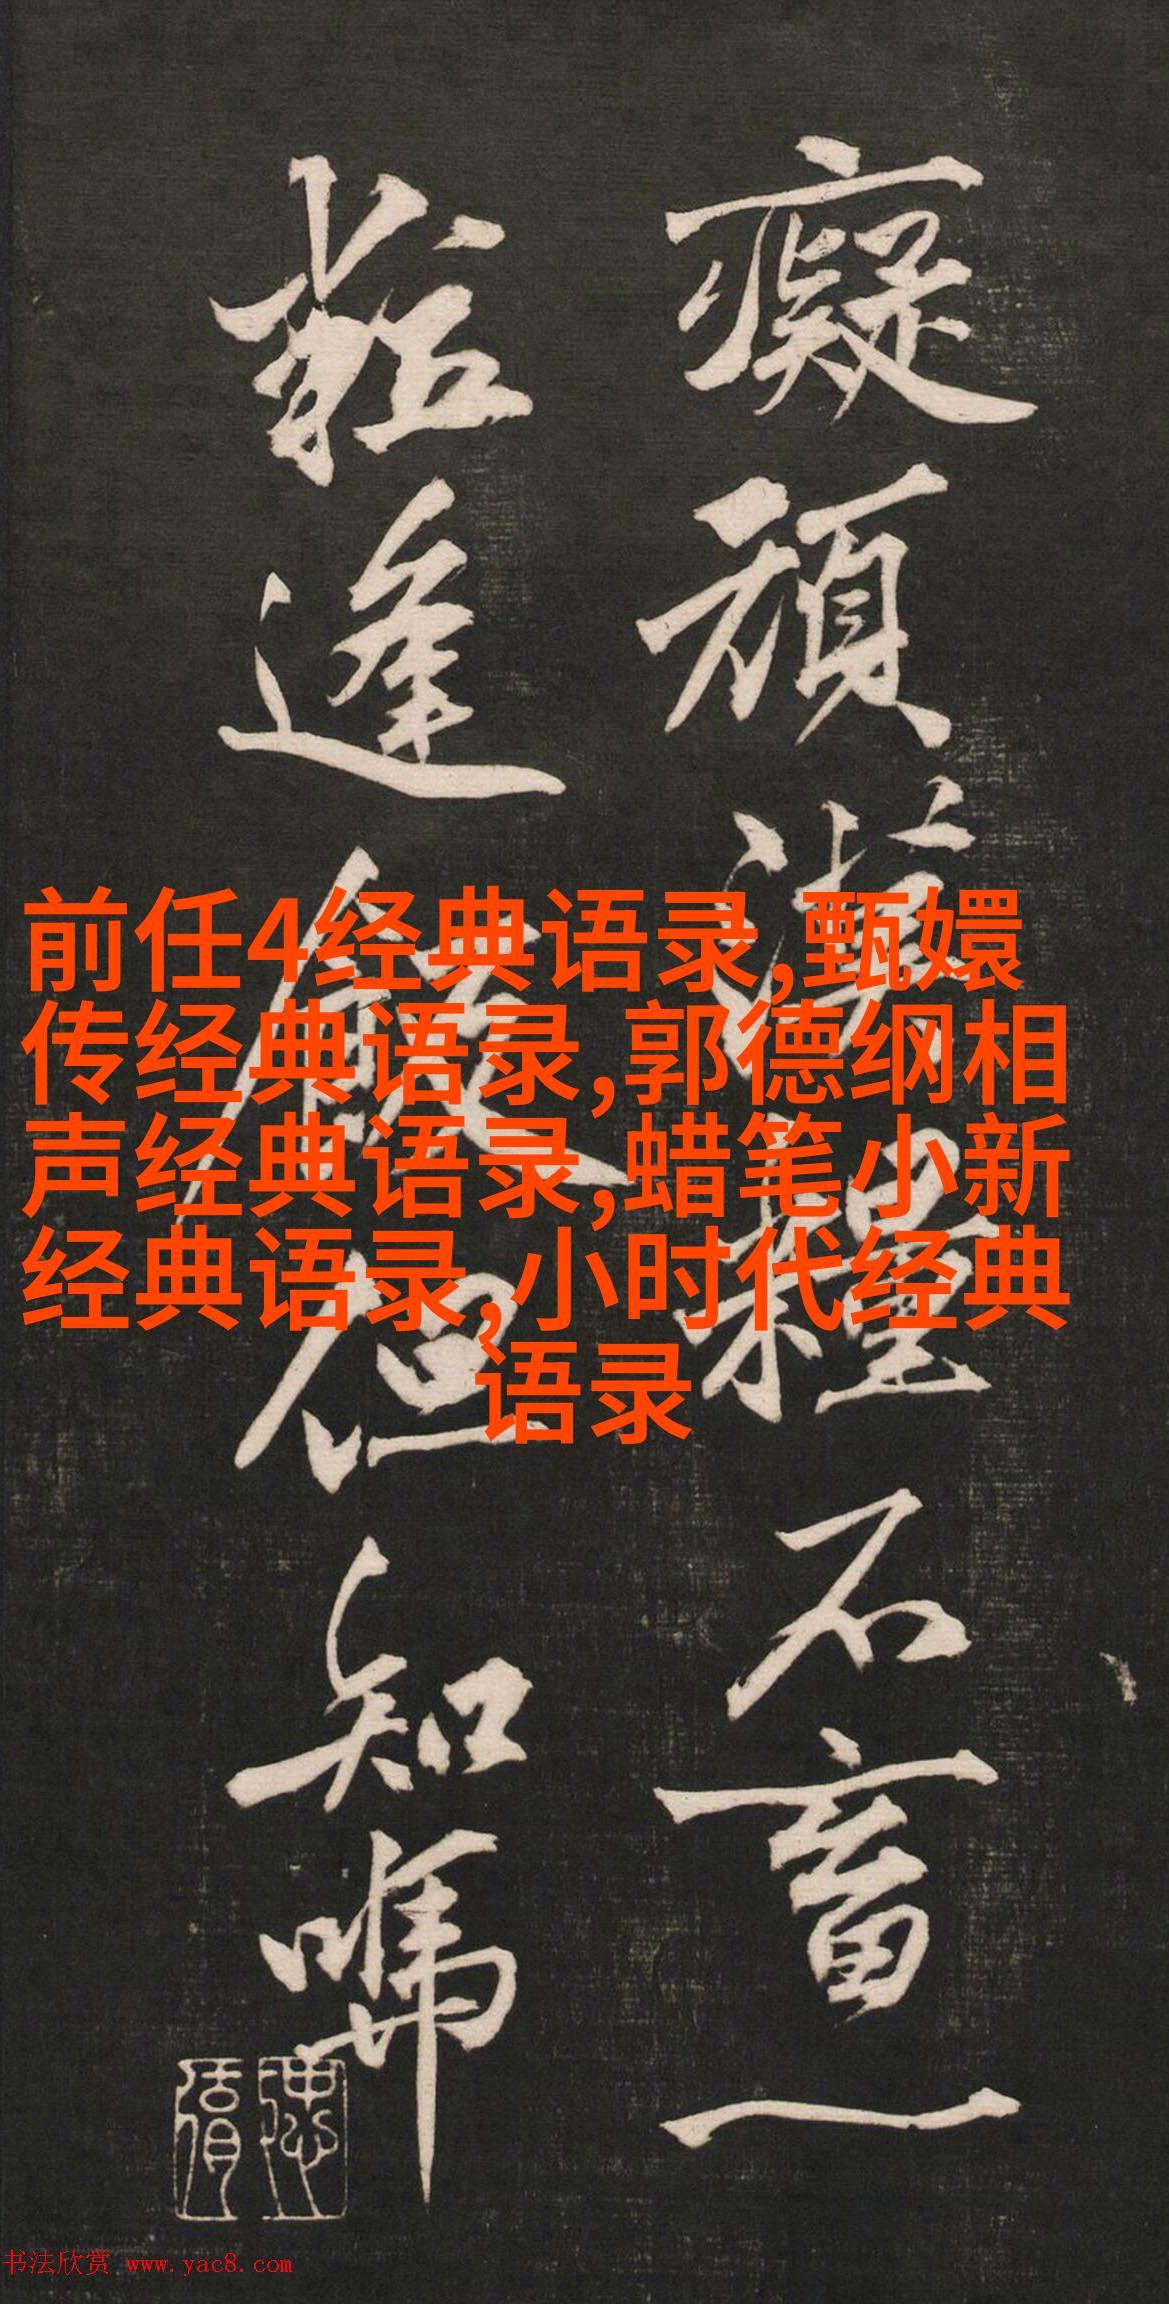 癡頑漢糧不畜一
粒逢飯但知
前任4经典语录,甄嬛
传经典语录,郭德纲相
声经典语录,蜡笔小新
经典语录,小时代经典
语录
书法欣赏 www.yac8.com